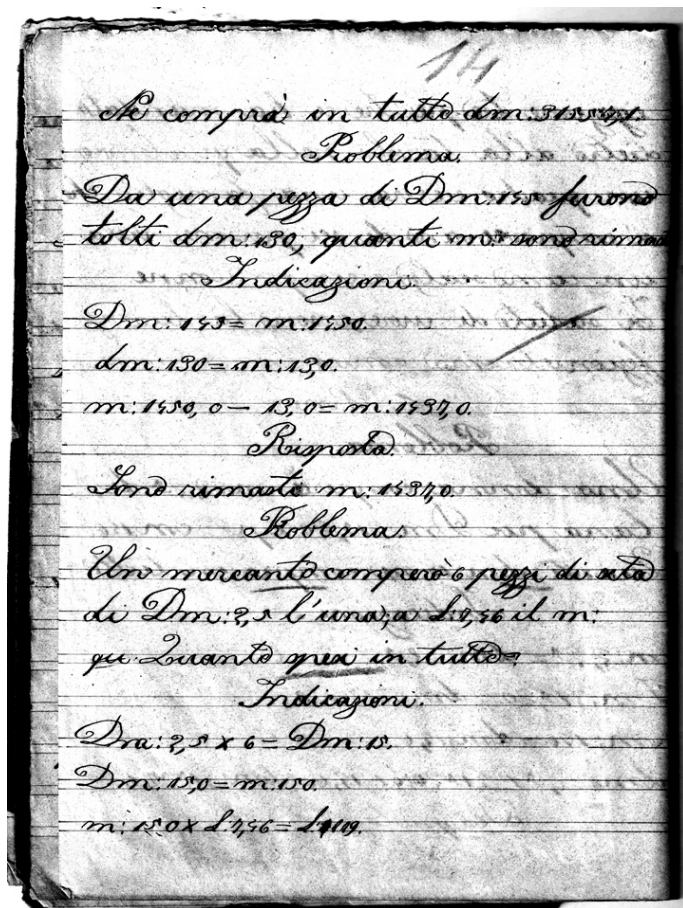 14
Ne comprà in tutto dm:
Problema.
Da una pezza di Dm: 155 furono
tolti dm: 130, quanti m: sono
Indicazioni.
Dm: 155 = m: 1550.
dm: 130 = m: 13,0.
m: 1550,0 — 13,0 = m: 1537,0.
Risposta
Sono rimasti m: 1537,0.
Problema.
Un mercanto comperò 6 pezzi di seta
di Dm: 2,5 l'una, a L: 7,46 il m:
qu Quanto spese in tutto?
Indicazioni.
Dm: 2,5 x 6 = Dm: 15.
Dm: 15,0 = m: 150.
m: 150 x L: 7,46 = L: 1119.